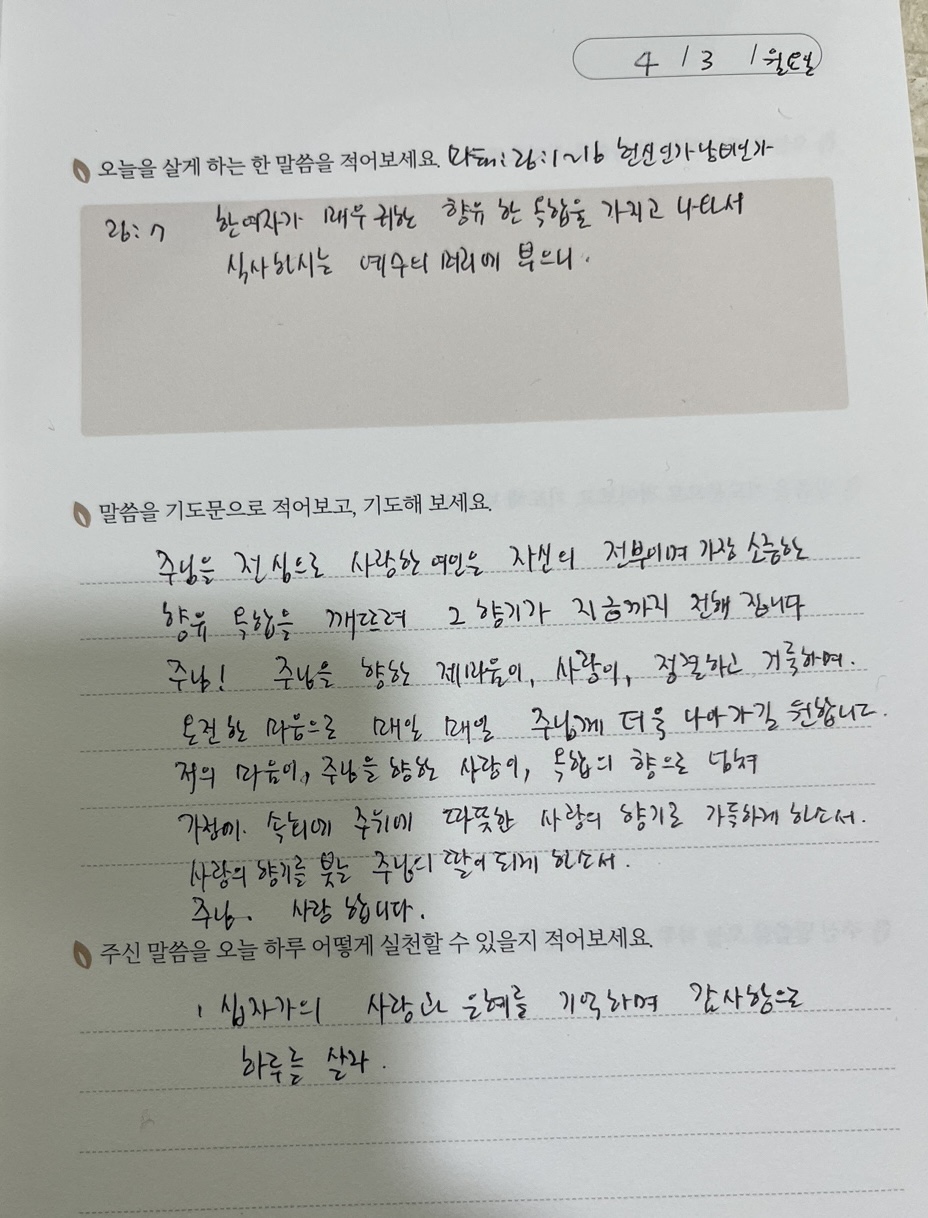 4 / 3 / 월요일
오늘을 살게 하는 한 말씀을 적어보세요. 마태:26:1~16 헌신인가 낭비인가
26:7 한여자가 매우 귀한 향유 한 옥합을 가지고 나와서
식사하시는 예수의 머리에 부으니.
말씀을 기도문으로 적어보고, 기도해 보세요.
주님을 전심으로 사랑한 여인은 자신의 전부이며 가장 소중한
향유 옥합을 깨뜨려 그 향기가 지금까지 전해 집니다
주님! 주님을 향한 제마음이, 사랑이, 정결하고 거룩하며.
온전한 마음으로 매일 매일 주님께 더욱 나아가길 원합니다.
저의 마음이, 주님을 향한 사랑이, 옥합의 향으로 넘쳐
가정에. 속회에 주위에 따뜻한 사랑의 향기로 가득하게 하소서.
사랑의 향기를 붓는 주님의 딸이 되게 하소서.
주님. 사랑 합니다.
주신 말씀을 오늘 하루 어떻게 실천할 수 있을지 적어보세요.
1 십자가의 사랑과 은혜를 기억하며 감사함으로
하루를 살라.